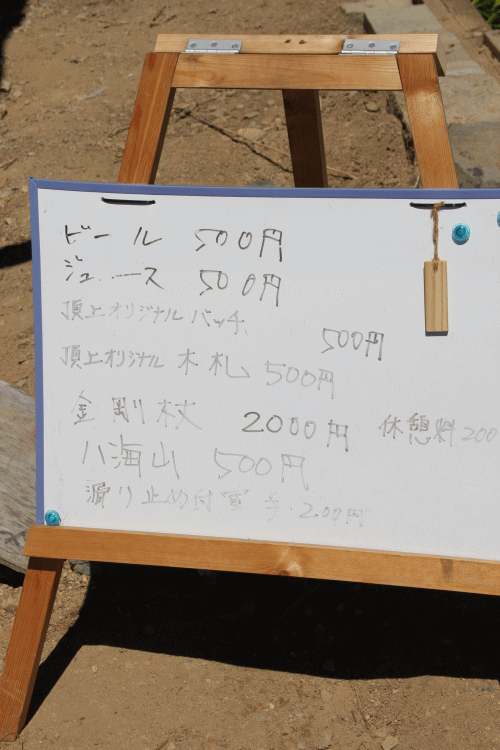 ビール 500円
ジュース 500円
頂上オリジナルバッチ
500円
頂上オリジナル 木札 500円
金剛杖 2000円 休憩料 200
八海山 500円
滑り止め付軍手 200円